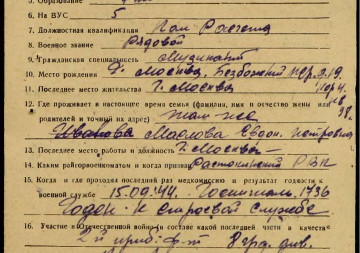 5. Образование
6. На ВУС 5
7. Должностная квалификация Ком. Расчета
8. Военное звание Рядовой
9. Гражданская специальность Музыкант
10. Место рождения г. Москва, Безбожный пер. д. 19.
11. Последнее место жительства г. Москва кв. 38.
12. Где проживает в настоящее время семья (фамилия, имя и отчество жены или
родителей и точный адрес) там же
Иванова Маслова Евдок. Петровна
13. Последнее место работы и должность г. Москва
14. Каким райгорвоенкоматом и когда призван Ростокинский РВК
15. Когда и где проходил последний раз медкомиссию и результат годности к
военной службе 15.09.44. Госпиталь 1736
Годен к строевой службе
16. Участие в Отечественной войне (в составе какой последней части и в качестве
2й приб. ф-т 8 гва. див.